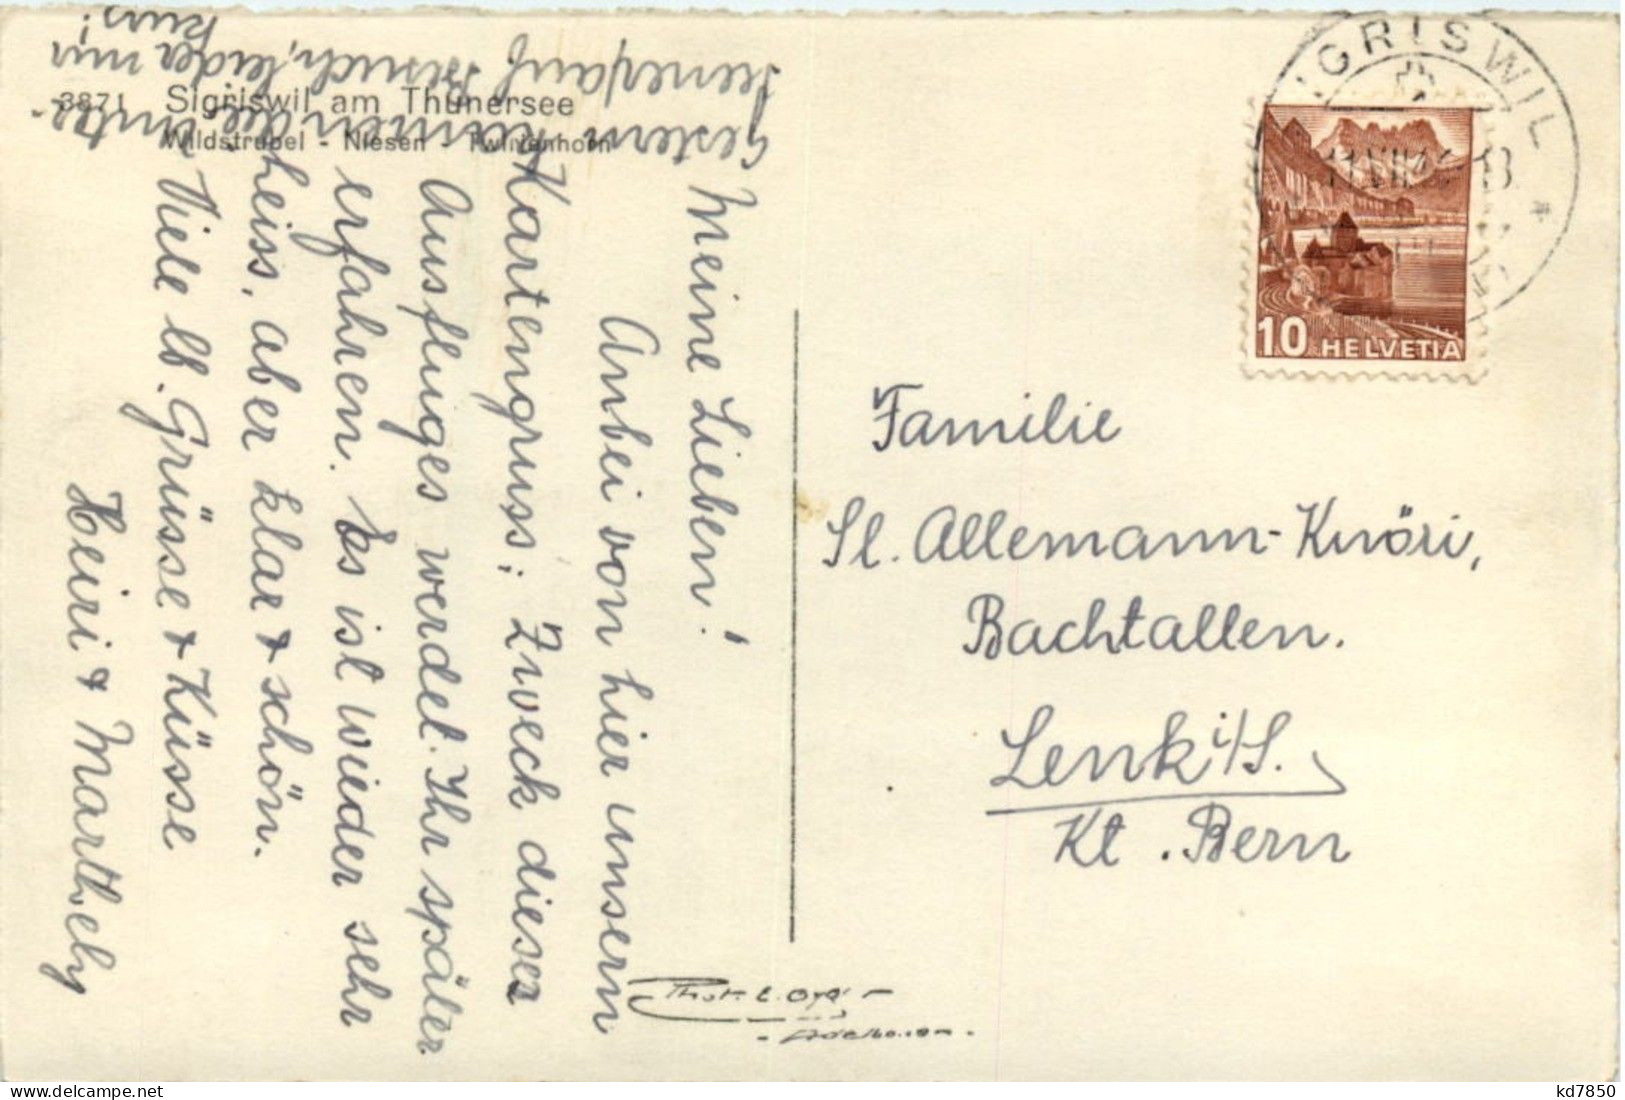 3871 Sigriswil am Thunersee
Wildstrubel - Niesen - Twirienhorn
Meine Lieben!
Anbei von hier unsern
Kartengruss; Zweck dieses
Ausfluges werdet Ihr später
erfahren. Es ist wieder sehr
heiss, aber klar + schön.
Viele lb. Grüsse + Küsse
Heiri + Marthely
Gestern kamen die Inter-
auf Besuch, leider nur
kurz!
SIGRISWIL
10 HELVETIA
Familie
Sl. Allemann-Knöri,
Bachtallen.
Lenk i/S.
Kt. Bern
Phot. E. Gyger
- Adelboden -
kd7850